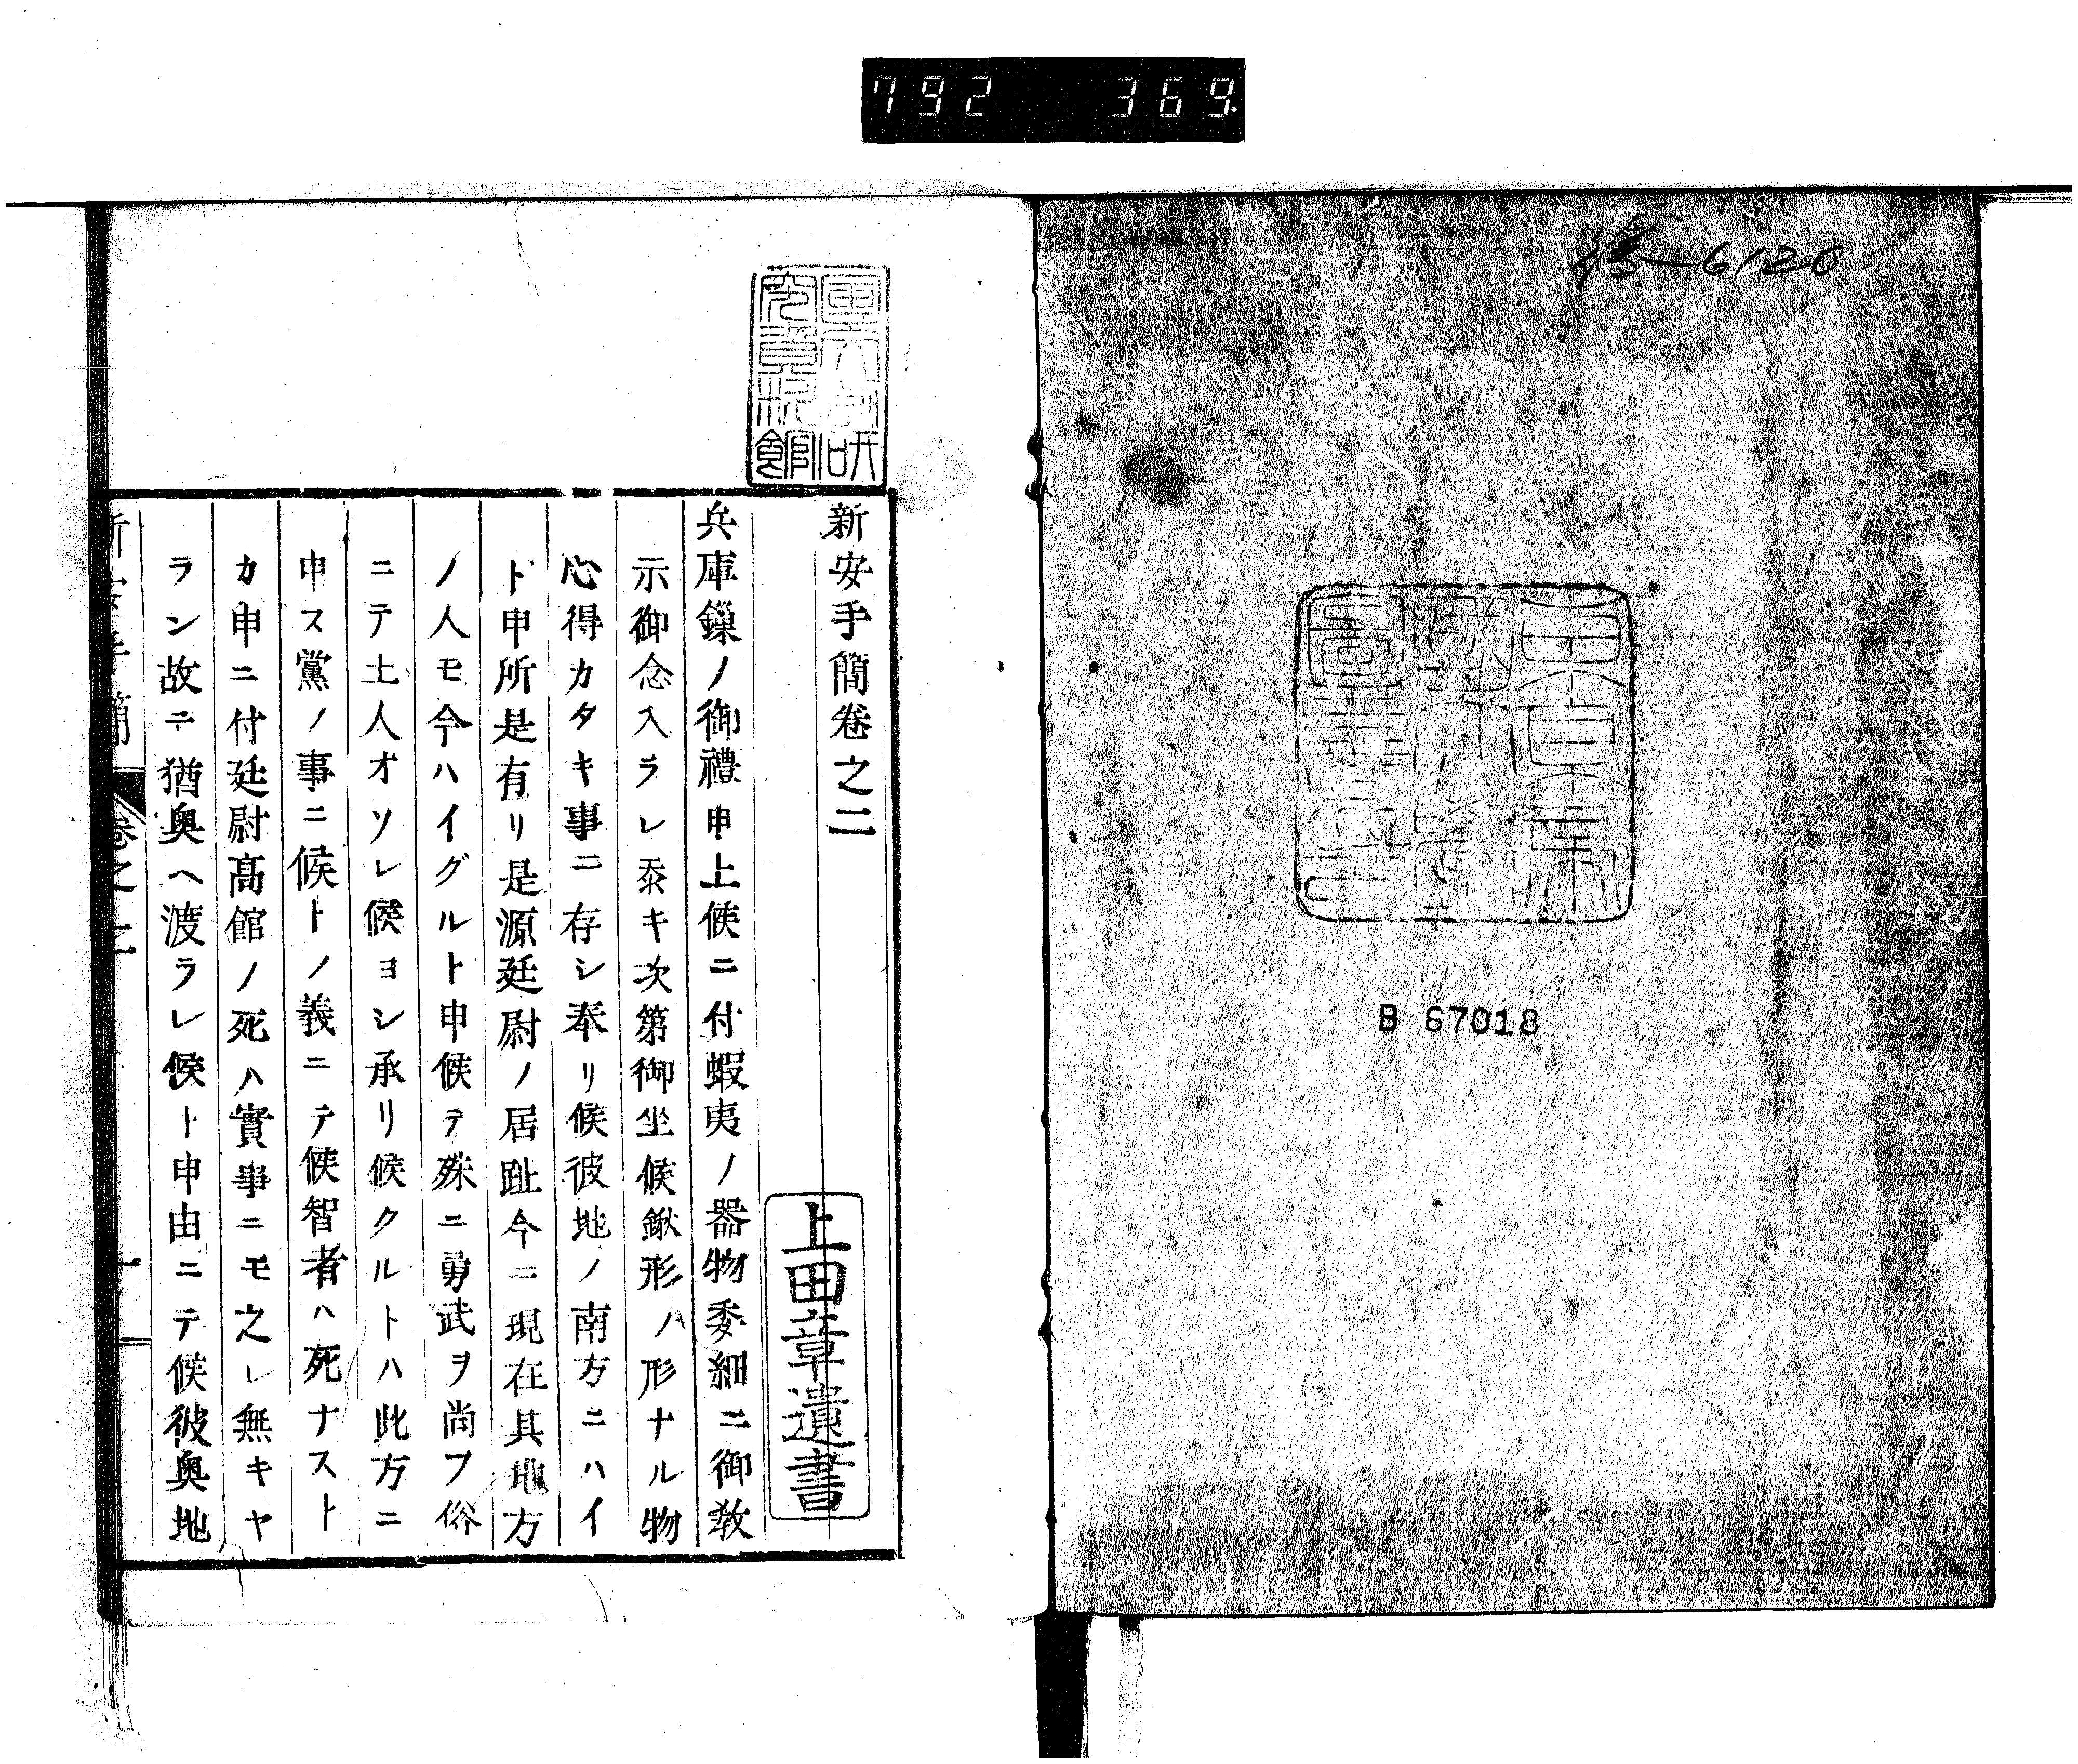 792 369
6126
B 67018
新安手簡巻之二
上田章遺書
兵庫鏁ノ御禮申上候ニ付蝦夷ノ器物委細ニ御教
示御念入ラレ忝キ次第御坐候鍬形ノ形ナル物
心得カタキ事ニ存シ奉リ候彼地ノ南方ニハイ
ト申所是有リ是源廷尉ノ居趾今ニ現在其地方
ノ人モ今ハイグルト申候テ殊ニ勇武ヲ尚フ俗
ニテ土人オソレ候ヨシ承リ候クルトハ此方ニ
申ス黨ノ事ニ候トノ義ニテ候智者ハ死ナスト
カ申ニ付廷尉髙館ノ死ハ實事ニモ之レ無キヤ
ラン故ニ猶奥ヘ渡ラレ候ト申由ニテ候彼奥地
新安手簡 巻之二 一